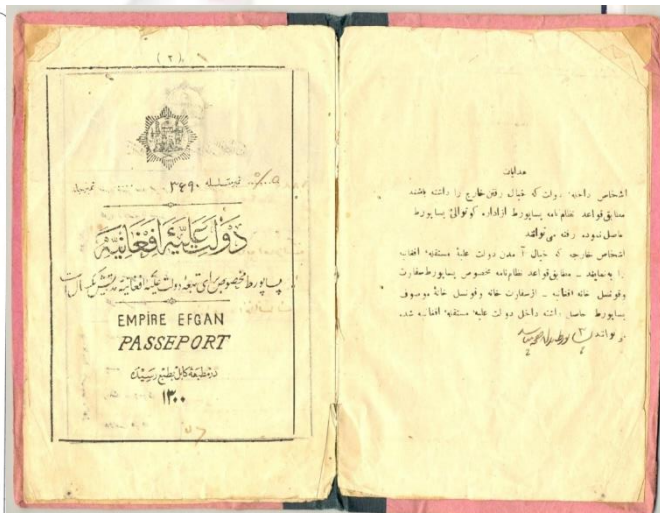 (٢)
نمبر مسلسله ٣٤٩٠
دولت علیۀ افغانیه
پساپورط مخصوص برای تبعۀ دولت علیۀ افغانیه
EMPIRE EFGAN
PASSEPORT
در مطبعۀ کابل بطبع رسیده
١٣٠٠
هدایات
اشخاص داخلیۀ دولت که خیال رفتن خارج را داشته باشند
مطابق قواعد نظام نامه پساپورط از اداره کوتوالئ پساپورط
حاصل نموده رفته می توانند
اشخاص خارجه که خیال آمدن دولت علیۀ مستقلۀ افغانیه
را بنمایند – مطابق قواعد نظام نامه مخصوص پساپورط سفارت
وقونسل خانه افغانیه – از سفارت خانه وقونسل خانۀ موصوف
پساپورط حاصل داشته داخل دولت علیه مستقلۀ افغانیه شده